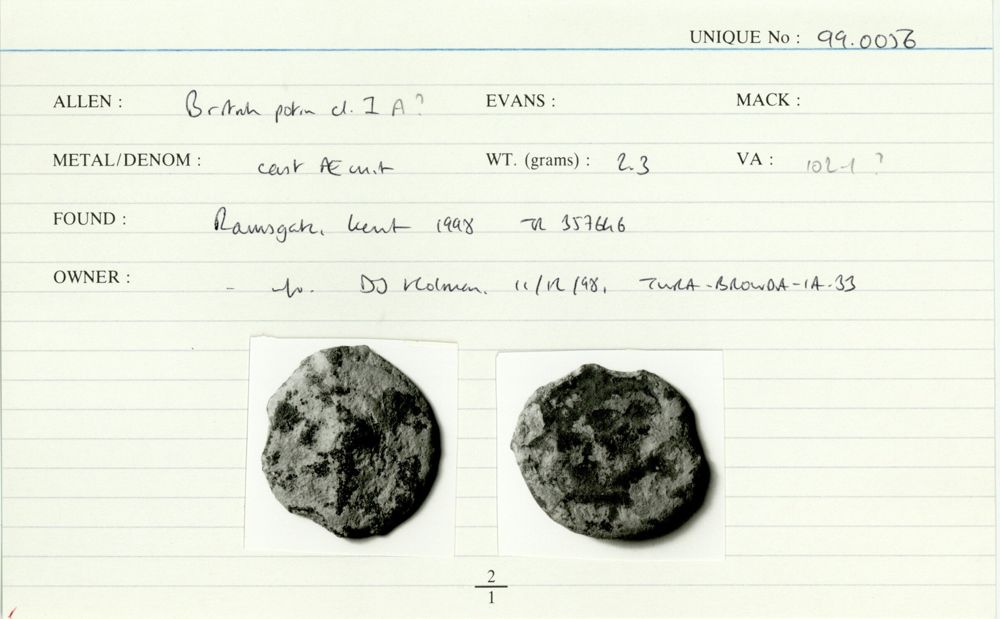 UNIQUE No : 99.0056
ALLEN : British potin cl. I A? EVANS : MACK :
METAL/DENOM : cast Æ unit WT. (grams) : 2.3 VA : 102-1 ?
FOUND : Ramsgate, Kent 1998 TR 357646
OWNER : - DJ Holman. 11/12/98.
2
1